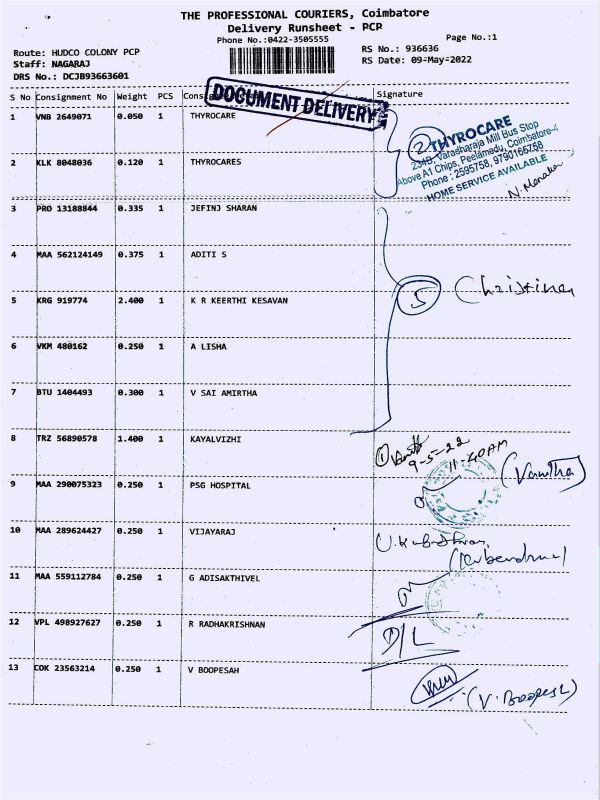 THE PROFESSIONAL COURIERS, Coimbatore
Delivery Runsheet - PCP
Phone No.:0422-3505555
Page No.:1
Route: HUDCO COLONY PCP
RS No.: 936636
Staff: NAGARAJ
RS Date: 09-May-2022
DRS No.: DCJB93663601
S No Consignment No Weight PCS Signature
DOCUMENT DELIVERY
1 VNB 2649071 0.050 1 THYROCARE
2 THYROCARE
234D, Varadharaja Mill Bus Stop
Above A1 Chips, Peelamedu, Coimbatore-4
Phone : 2595758, 9790166758
HOME SERVICE AVAILABLE
2 KLK 8048036 0.120 1 THYROCARES
3 PRO 13188844 0.335 1 JEFINJ SHARAN
4 MAA 562124149 0.375 1 ADITI S
5 Christina
5 KRG 919774 2.400 1 K R KEERTHI KESAVAN
6 VKM 480162 0.250 1 A LISHA
7 BTU 1404493 0.300 1 V SAI AMIRTHA
8 TRZ 56890578 1.400 1 KAYALVIZHI
1
9-5-22
11-40AM
9 MAA 290075323 0.250 1 PSG HOSPITAL
(Vanitha)
10 MAA 289624427 0.250 1 VIJAYARAJ
11 MAA 559112784 0.250 1 G ADISAKTHIVEL
12 VPL 498927627 0.250 1 R RADHAKRISHNAN
D/L
13 COK 23563214 0.250 1 V BOOPESAH
(V. Boopesh)